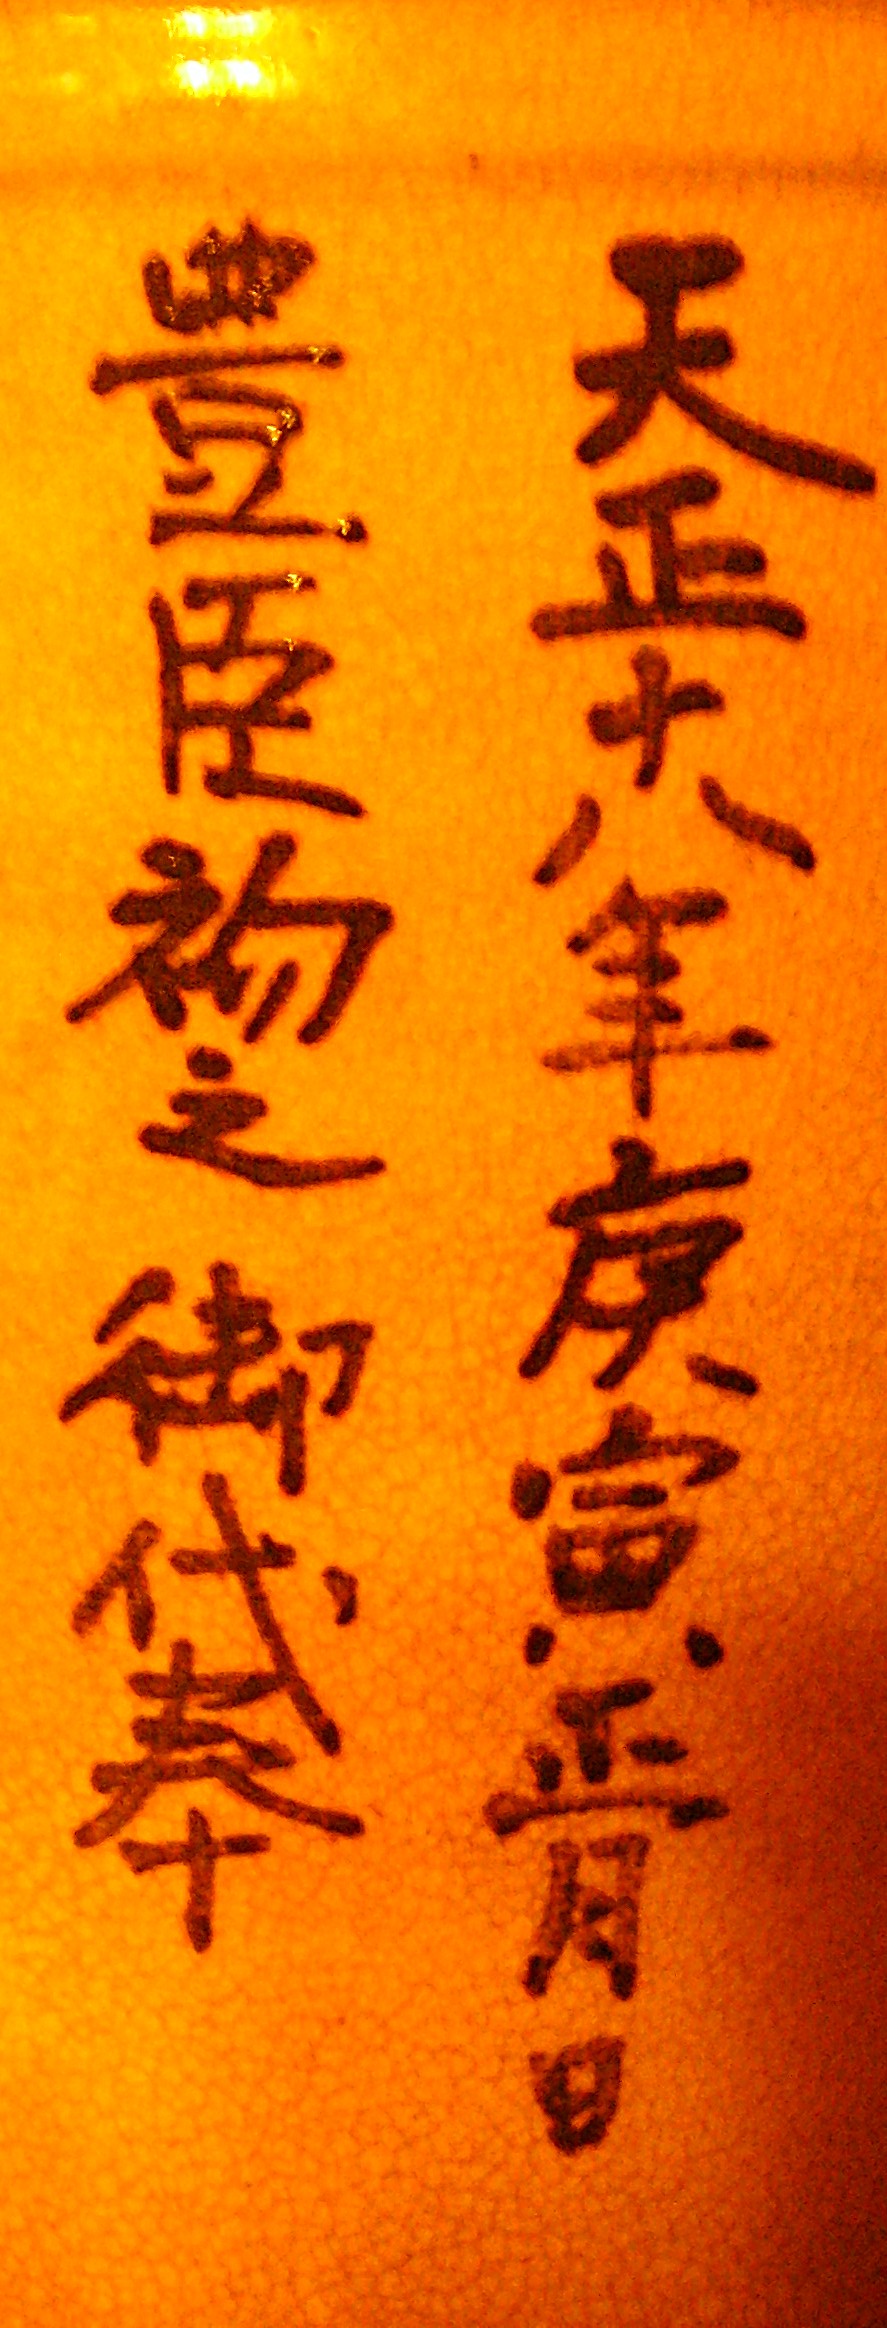 天正十八年庚寅正月日
豊臣初之御代奉